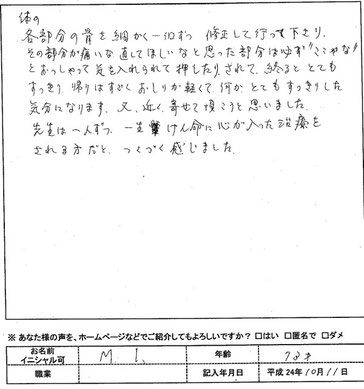 体の
各部分の骨を細かく一つずつ 修正して行って下さり、
その部分が痛いな直してほしいなと思った部分は必ず"ここやな"
とおっしゃって気を入れられて押したり、されて、終ると とても
すっきり、帰りはすごくおしりが軽くて、何か、とてもすっきりした
気分になります。又、近く、寄せて頂こうと思いました。
先生は一人ずつ、一生けん命に心が入った治療を
される方だと、つくづく感じました。
※ あなた様の声を、ホームページなどでご紹介してもよろしいですか? □はい □匿名で □ダメ
お名前 イニシャル可 M. I. 年齢 73才
職業 記入年月日 平成24年10月11日